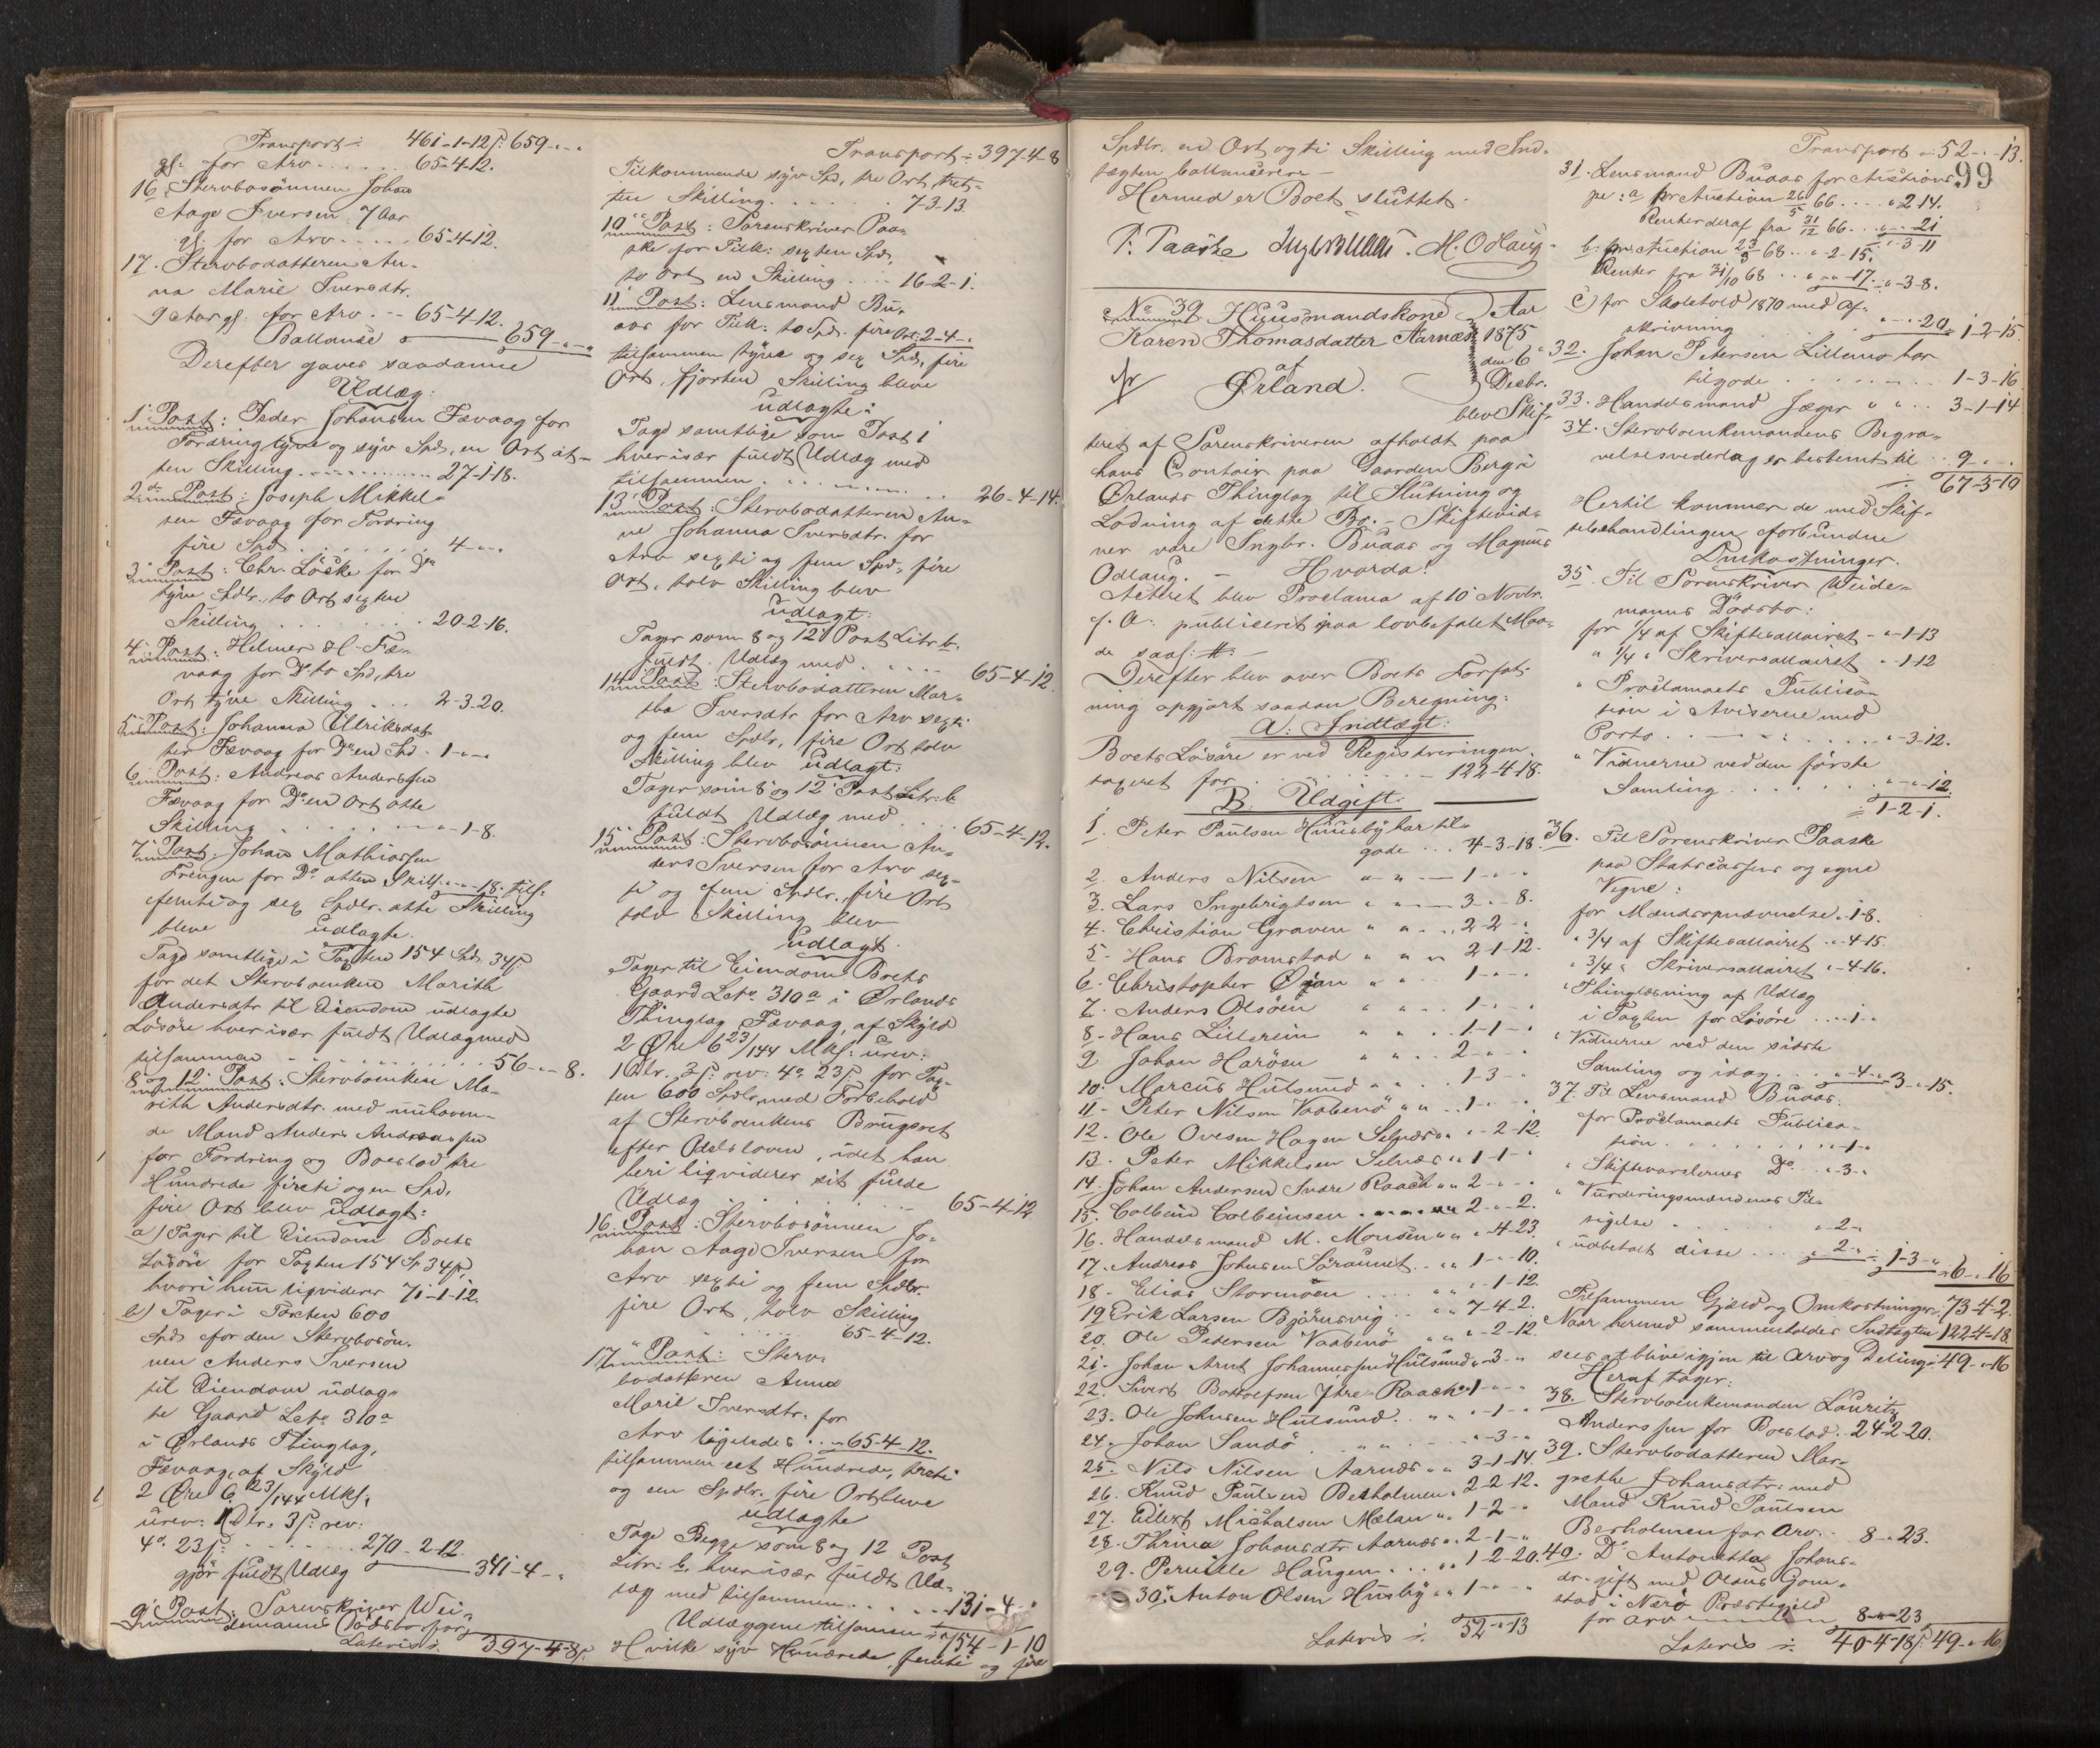 Transport ÷ 461-1-12ß. 659-"-"
gl. for Arv . . . . . 65-4-12.
16. Stervbosönnen Johan
Aage Iversen 7 Aar
gl. for Arv . . . . 65-4-12.
17. Stervbodatteren An-
na Marie Iversdtr.
9 Aar gl. for Arv . - - 65-4-12.
Ballance 659-"-"
Derefter gaves saadanne
Udlæg:
1' Post: Peder Johansen Fævaag for
Fordring tyve og syv Spd, en Ort at-
ten Skilling . . . . . . . . . 27-1-18.
2den Post: Joseph Mikkel-
sen Fævaag for Fordring
fire Spd . . . . . . . . 4-"-"
3' Post: Chr. Löcke for Do
tyve Spdlr., to Ort sexten
Skilling . . . . . . . 20-2-16.
4' Post: Helmer H- Fæ-
vaag for Do to Spd, tre
Ort tyve Skilling . . . 2-3-20.
5' Post: Johanna Ulriksdat-
ter Fævaag for Do en Spd - 1-"-"
6' Post: Andreas Anderssen
Fævaag for Do en Ort otte
Skilling . . . . . . . "-1-8.
7' Post: Johan Mathiassen
Frengen for Do atten Skill. "-"-18. tils:
femti og sex Spdlr. otte Skilling
bleve udlagte.
Tage samtlige i Taxten 154 Spd. 34ß.
for det Stervboenken Marith
Andersdtr til Eiendom udlagte
Lösöre hver især fuldt Udlæg med
tilsammen . . . . . . . . 56-"-8.
8' og 12' Post: Stervboenken Ma-
rith Andersdtr. med nuhaven-
de Mand Anders Andreassen
for Fordring og Boeslod tre
Hundrede fireti og en Spd,
fire Ort blev udlagt:
a) Tager til Eiendom Boets
Lösöre for Taxten 154 Sp 34ß,
hvori hun liqviderer 71-1-12.
b) Tager i Taxten 600
Spd for den Stervbosön-
nen Anders Iversen
til Eiendom udlag-
te Gaard Lct. 310a
i Ørlands Thinglag,
Fævaag, af Skyld
2 Øre 6 23/144 Mkl,
urev: 1 Dlr. 3ß rev:
4o. 23ß . . . . . . 270-2-12.
gjør fuldt Udlæg 341-4-"
9' Post: Sorenskriver Wei-
demanns Dödsbo for
Lateris ÷ 397-4-8ß.
Transport ÷ 397-4-8
Tilkommende syv Spd, tre Ort, tret-
ten Skilling . . . . . . 7-3-13.
10' Post: Sorenskriver Paa-
ske for Tilk: sexten Spd,
to Ort en Skilling . . . . 16-2-1.
11' Post: Lensmand Bu-
aas for Tilk: to Spd. fire Ort. 2-4-"
tilsammen tyve og sex Spd, fire
Ort, fjorten Skilling bleve
udlagte:
Tage samtlige som Post 1
hver især fuldt Udlæg med
tilsammen . . . . . . . . 26-4-14.
13' Post: Stervbodatteren An-
ne Johanna Iversdtr. for
Arv sexti og fem Spd, fire
Ort, tolv Skilling blev
udlagt:
Tager som 8 og 12' Post Litr. b.
fuldt Udlæg med . . . . 65-4-12.
14' Post: Stervbodatteren Mar-
tha Iversdtr for Arv sexti
og fem Spdlr, fire Ort tolv
Skilling blev udlagt:
Tager som 8' og 12' Post Litr. b
fuldt Udlæg med . . . 65-4-12.
15' Post: Stervbosönnen An-
ders Iversen for Arv sex-
ti og fem Spdlr. fire Ort
tolv Skilling blev
udlagt.
Tager til Eiendom Boets
Gaard Lct. 310a i Ørlands
Thinglag Fævaag, af Skyld
2 Øre 6 23/144 Mkl: urev:
1 Dlr. 3ß: rev: 4o. 23ß for Tax-
ten 600 Spdlr, med Forbehold
af Stervboenkens Brugsret
efter Odelsloven, idet han
heri liqviderer sit fulde
Udlæg . . . . . . . . 65-4-12
16. Post: Stervbosönnen Jo-
han Aage Iversen for
Arv sexti og fem Spdlr.
fire Ort, tolv Skilling
. . . . . . 65-4-12.
17' Post: Sterv-
bodatteren Anna
Marie Iversdtr. for
Arv ligeledes . . . 65-4-12.
tilsammen eet Hundrede, treti
og en Spdlr. fire Ort bleve
udlagte
Tage Begge som 8 og 12 Post
Litr: b. hver især fuldt Ud-
læg med tilsammen . . . . . 131-4-"
Udlæggene tilsammen ÷ 754-1-10
Hvilke syv Hundrede, femti og fire
Spdlr. en Ort og ti Skilling med Ind-
tægten ballancerere -
Hermed er Boet sluttet.
P. Paaske Ingebr. Buaas. M. Odlaug
No 39 Huusmandskone Aar
Karen Thomasdatter Aarnæs 1875
af den 6'
Ørland. Decbr.
blev Skif-
teret af Sorenskriveren afholdt paa
hans Contoir paa Gaarden Berg i
Ørlands Thinglag til Slutning og
Lodning af dette Bo. - Skiftevid-
ner vare Ingbr. Buaas og Magnus
Odlaug. - Hvorda:
Acteret blev Proclama af 10' Novbr.
f. A: publiceret paa lovbefalet Maa-
de saal: #. -
Derefter blev over Boets Forfat-
ning opgjort saadan Beregning:
A: Indtægt:
Boets Lösöre er ved Registreringen
taxeret for . . . . . . . . - 122-4-18.
B: Udgift.
1. Peter Paulsen Huusby har til-
gode . . . 4-3-18.
2. Anders Nilsen " " - 1-"-"
3. Lars Ingebrigtsen " " - 3-"-8.
4. Christian Graven " " . . 2-2-"
5. Hans Bromstad " " " 2-1-12.
6. Christopher Øjan " " . 1-"-"
7. Anders Olsöen " " . . 1-"-"
8. Hans Litlerein " " . . 1-1-"
9. Johan Haröen " " . . 2-"-"
10. Marcus Hulsund " " . . 1-3-"
11. Peter Nilsen Vaabenö " " . . 1-"-"
12. Ole Ovesen Hagen Selnæs " " "-2-12.
13. Peter Mikkelsen Selnæs " " 1-1-"
14. Johan Andersen Indre Raach " " 2-"-"
15. Colbein Colbeinsen . . . . 2-"-2.
16. Handelsmand M. Monsen " " "-4-23.
17. Andreas Johnsen Söraunet . " " 1-"-10.
18. Elias Stormoen . . . " " "-1-12.
19 Erik Larsen Bjørnsvig . . " " 7-4-2.
20. Ole Pedersen Vaabenö " " "-2-12.
21. Johan Arnt Johannessen Hulsund " "-3-"
22. Sivert Bottolfsen Ytre Raach " 1-"-"
23. Ole Johnsen Hulsund . . " " "-1-"
24. Johan Sandö . . " " . "-3-"
25. Nils Nilsen Aarnæs " " 3-1-14.
26. Knud Paulsen Berholmen " 2-2-12.
27. Eilert Michalsen Mælan " " 1-2-"
28. Thrina Johansdtr. Aarnæs " " 2-1-"
29. Pernille Haugen . . . " " 1-2-20.
30. Anton Olsen Husby " " 1-"-"
Lateris ÷ 52-"-13
99
Transport ÷ 52-"-13.
31. Lensmand Buaas for Auctions-
pe: a. pr Auction 26/5 66 . . . . "-2-14.
Renter deraf fra 31/12 66 . . . "-"-21
"-3-11
b. pr. Auction 23/3 68 . . "-2-15.
Renter fra 31/10 68 . . "-"-17. "-3-8.
c) for Skoletold 1870 med Af-
skrivning . . . . . . "-"-20. 1-2-15.
32. Johan Petersen Lillemo har
tilgode . . . . . . . . 1-3-16
33. Handelsmand Jæger " " . . 3-1-14
34. Stervboenkemandens Begra-
velsesvederlag er bestemt til . . 9-"-"
÷ 67-3-10
Hertil kommer de med Skif-
tebehandlingen forbundne
Omkostninger.
35. Til Sorenskriver Weide-
manns Dödsbo:
for 1/4 af Skiftesallairet - "-1-13
" 1/4 " Skriversallairet "-1-12
" Proclamaets Publica-
tion i Aviserne med
Porto . . . . . . . . "-3-12.
" Vidnerne ved den förste
Samling . . . . . . . "-"-12.
÷ 1-2-1.
36. Til Sorenskriver Paaske
paa Statscassens og egne
Vegne:
for Mandsopnævnelse "-1-8.
" 3/4 af Skiftesallairet "-4-15.
" 3/4 " Skriversallairet "-4-16.
" Thinglæsning af Udlæg
i Taxten for Lösöre . . "-1-"
" Vidnerne ved den sidste
Samling og idag . . . "-4-" 3-"-15.
37. Til Lensmand Buaas:
for Proclamaets Publica-
tion . . . . . . . . "-1-"
" Skiftevarslernes Do . . "-3-"
" Vurderingsmændenes Til-
sigelse . . . . . . "-2-"
" udbetalt disse . . . . "-2-" ÷ 1-3-" "6-"-16
Tilsammen Gjæld og Omkostninger ÷ 73-4-2.
Naar hermed sammenholdes Indtægten 122-4-18.
sees at blive igjen til Arv og Deling ÷ 49-"-16
Heraf tager:
38. Stervboenkemanden Lauritz
Anderssen for Boeslod . . 24-2-20.
39. Stervbodatteren Mar-
grethe Johansdtr. med
Mand Knud Paulsen
Berholmen for Arv . . 8-"-23.
40. Do Antonetta Johans-
dr. gift med Olaus Gom-
stad i Nærö Præstegjeld
for Arv 8-"-23
Lateris ÷ 40-4-18ß. 49-"-16